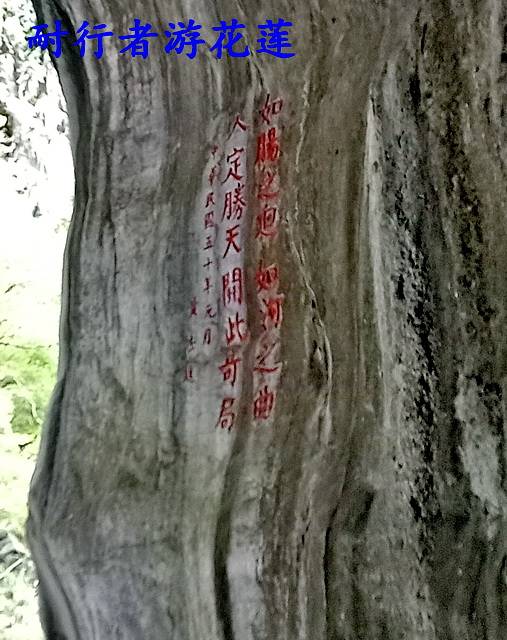 耐行者游花莲
如腸之迴如河之曲
人定勝天開此奇局
中華民國五十年元月